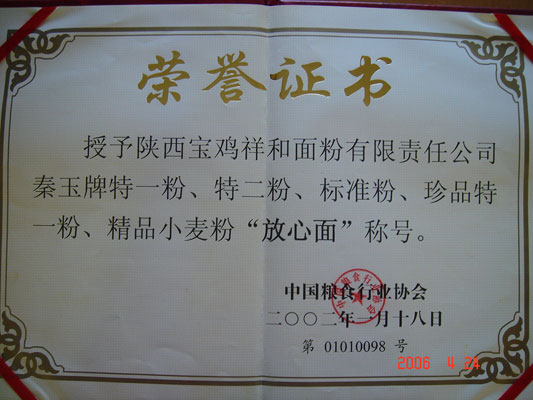 荣誉证书
授予陕西宝鸡祥和面粉有限责任公司
秦玉牌特一粉、特二粉、标准粉、珍品特
一粉、精品小麦粉“放心面”称号。
中国粮食行业协会
二〇〇二年一月十八日
第 01010098 号
2006 4 24